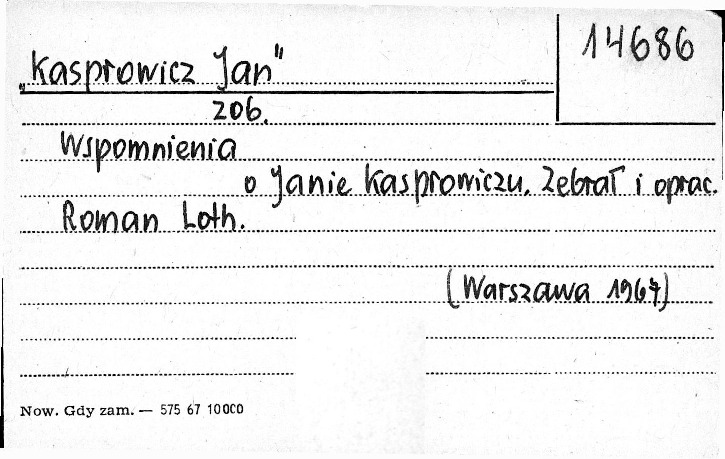 14686
„Kasprowicz Jan"
zob.
Wspomnienia
o Janie Kasprowiczu. Zebrał i oprac.
Roman Loth.
(Warszawa 1967)
Now. Gdy zam. — 575 67 10000